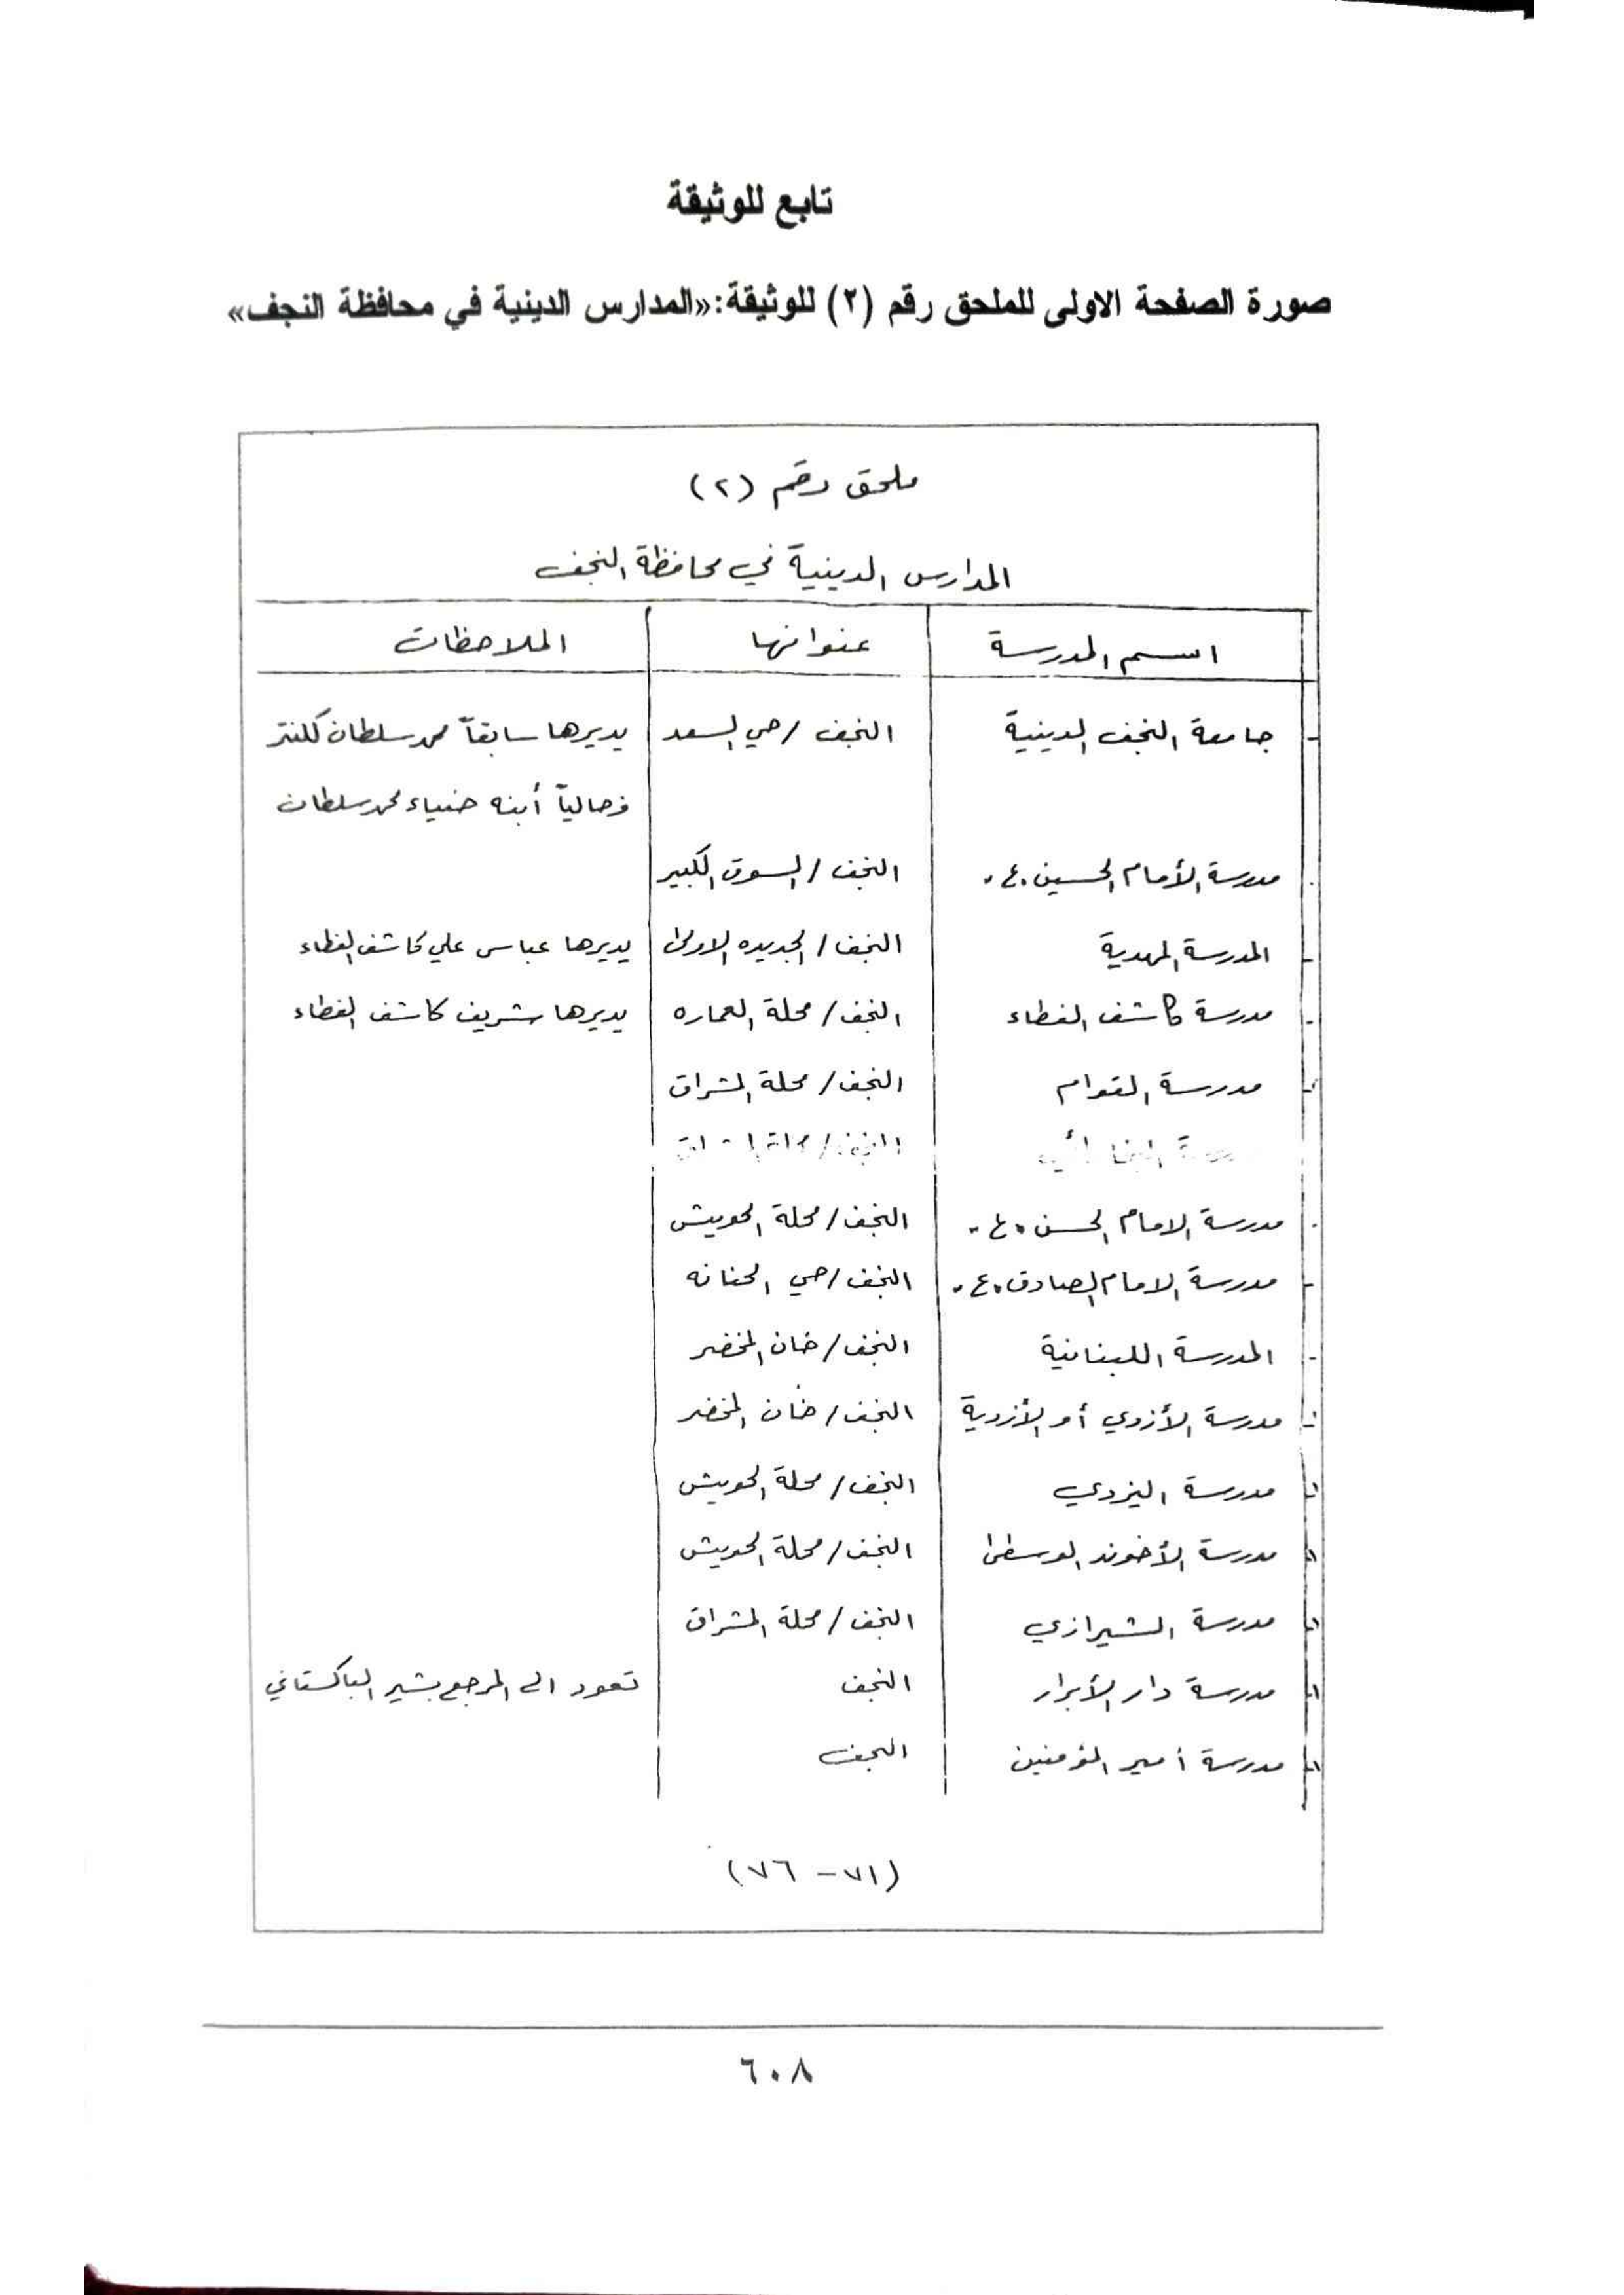 تابع للوثيقة
صورة الصفحة الاولى للملحق رقم (٢) للوثيقة:«المدارس الدينية في محافظة النجف»
ملحق رقم (٢)
المدارس الدينية في محافظة النجف
اسم المدرسة عنوانها الملاحظات
جامعة النجف الدينية النجف / حي السعد يديرها سابقاً محمد سلطان كلنتر
وحالياً أبنه ضياء محمد سلطان
مدرسة الأمام الحسين ٠ع٠ النجف / السوق الكبير
المدرسة المهدية النجف / الجديده الاولى يديرها عباس علي كاشف الغطاء
مدرسة كاشف الغطاء النجف / محلة العماره يديرها شريف كاشف الغطاء
مدرسة القوام النجف / محلة المشراق
النجف / محلة المشراق
مدرسة الامام الحسن ٠ع٠ النجف / محلة الحويش
مدرسة الامام الصادق ٠ع٠ النجف / حي الحنانه
المدرسة اللبنانية النجف / خان المخضر
مدرسة الأزدي أو الأزدية النجف / خان المخضر
مدرسة اليزدي النجف / محلة الحويش
مدرسة الأخوند الوسطى النجف / محلة الحويش
مدرسة الشيرازي النجف / محلة المشراق
مدرسة دار الأبرار النجف تعود الى المرجع بشير الباكستاني
مدرسة أمير المؤمنين النجف
(٧١ - ٧٦)
٦٠٨